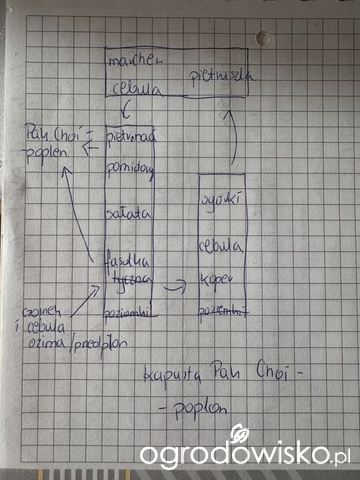 marchew
cebula pietruszka
Pak Choi =
-poplon
pomidory
sałata
fasolka
tyczna
poziomki
czosnek
i cebula
ozima / przedplon
ogórki
cebula
koper
poziomki
kapusta Pak Choi -
- poplon
ogrodowisko.pl